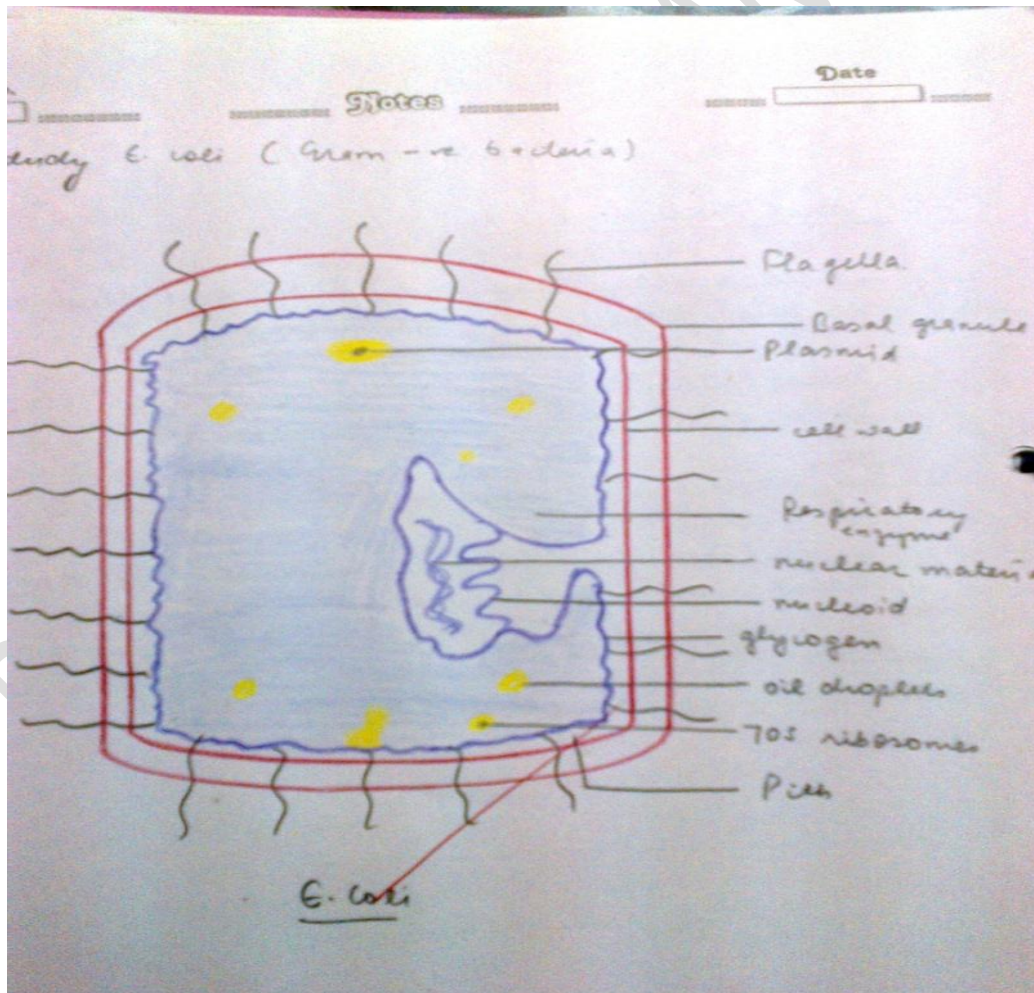 Notes
Date
E. coli ( Gram -ve bacteria)
Flagella
Basal granule
Plasmid
cell wall
Respiratory
enzyme
nuclear materi
nucleoid
glycogen
oil droplets
70S ribosomes
E. Coli